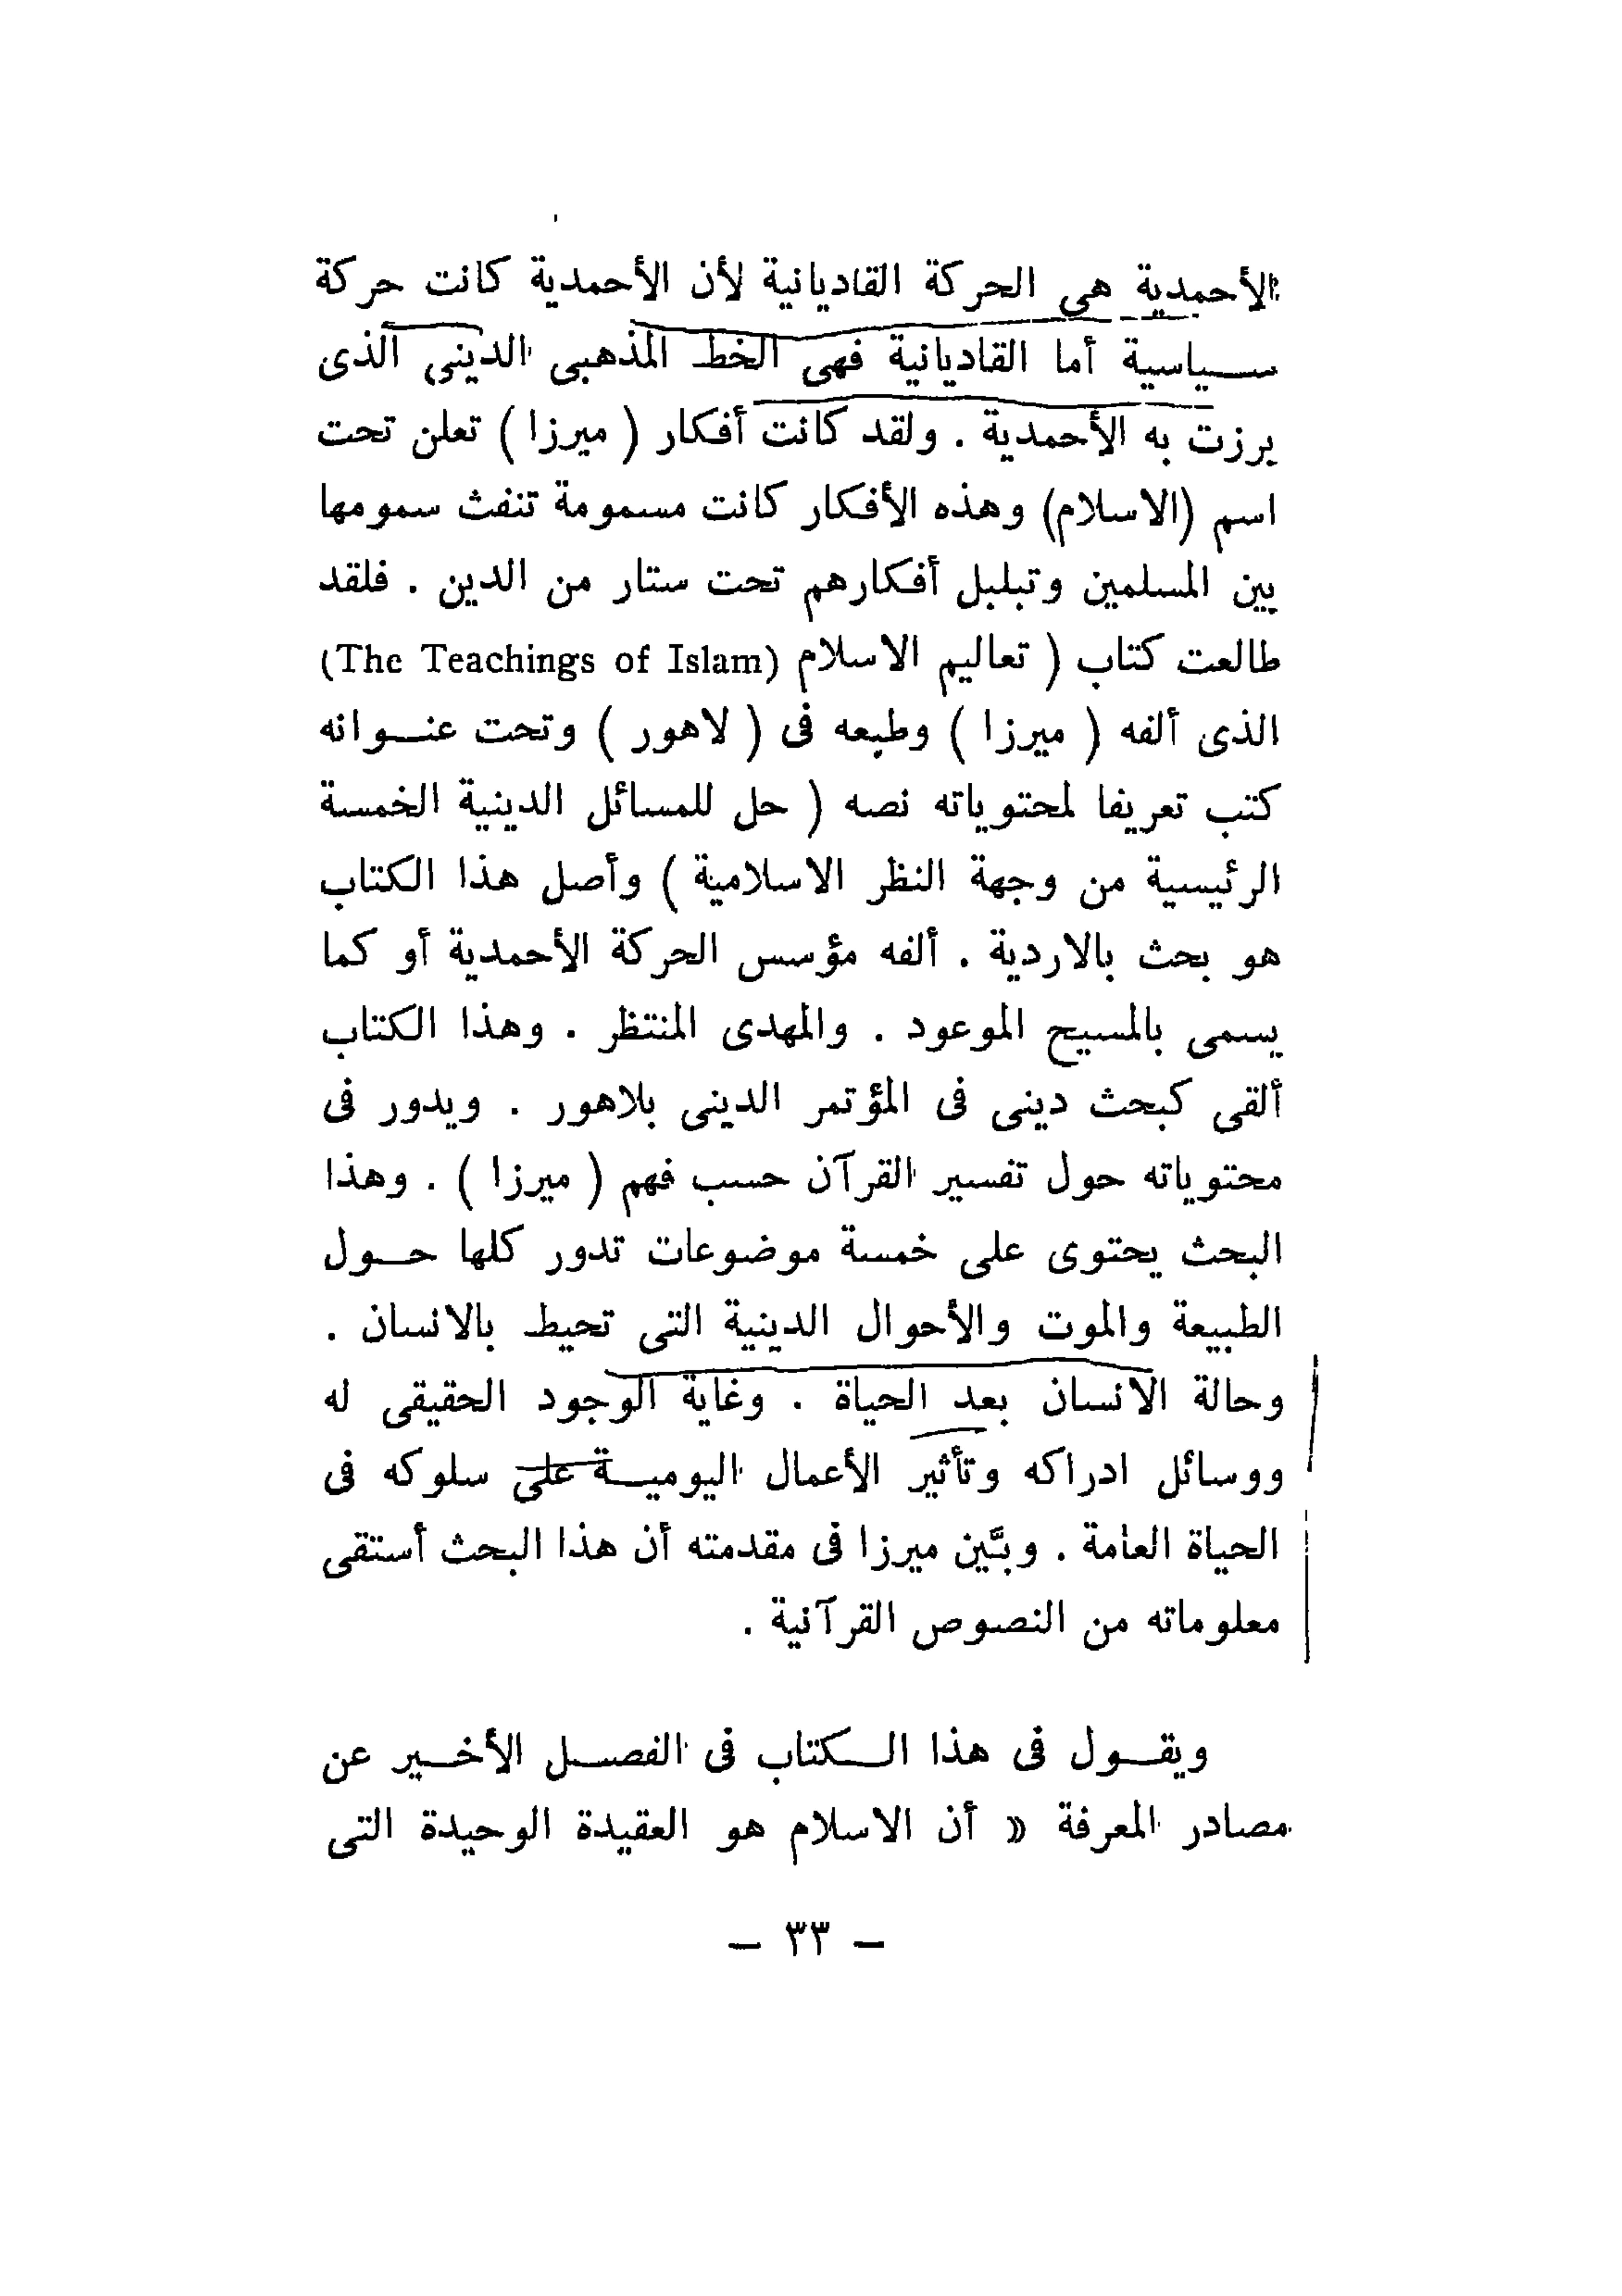 الأحمدية هى الحركة القاديانية لأن الأحمدية كانت حركة
سياسية أما القاديانية فهى الخط المذهبى الدينى الذى
برزت به الأحمدية . ولقد كانت أفكار ( ميرزا ) تعلن تحت
اسم (الاسلام) وهذه الأفكار كانت مسمومة تنفث سمومها
بين المسلمين وتبلبل أفكارهم تحت ستار من الدين . فلقد
طالعت كتاب ( تعاليم الاسلام (The Teachings of Islam)
الذى ألفه ( ميرزا ) وطبعه فى ( لاهور ) وتحت عنوانه
كتب تعريفا لمحتوياته نصه ( حل للمسائل الدينية الخمسة
الرئيسية من وجهة النظر الاسلامية ) وأصل هذا الكتاب
هو بحث بالاردية . ألفه مؤسس الحركة الأحمدية أو كما
يسمى بالمسيح الموعود . والمهدى المنتظر . وهذا الكتاب
ألقى كبحث دينى فى المؤتمر الدينى بلاهور . ويدور فى
محتوياته حول تفسير القرآن حسب فهم ( ميرزا ) . وهذا
البحث يحتوى على خمسة موضوعات تدور كلها حول
الطبيعة والموت والأحوال الدينية التى تحيط بالانسان .
وحالة الانسان بعد الحياة . وغاية الوجود الحقيقى له
ووسائل ادراكه وتأثير الأعمال اليومية على سلوكه فى
الحياة العامة . وبيَّن ميرزا فى مقدمته أن هذا البحث أستقى
معلوماته من النصوص القرآنية .
ويقول فى هذا الكتاب فى الفصل الأخير عن
مصادر المعرفة « أن الاسلام هو العقيدة الوحيدة التى
– ٣٣ –